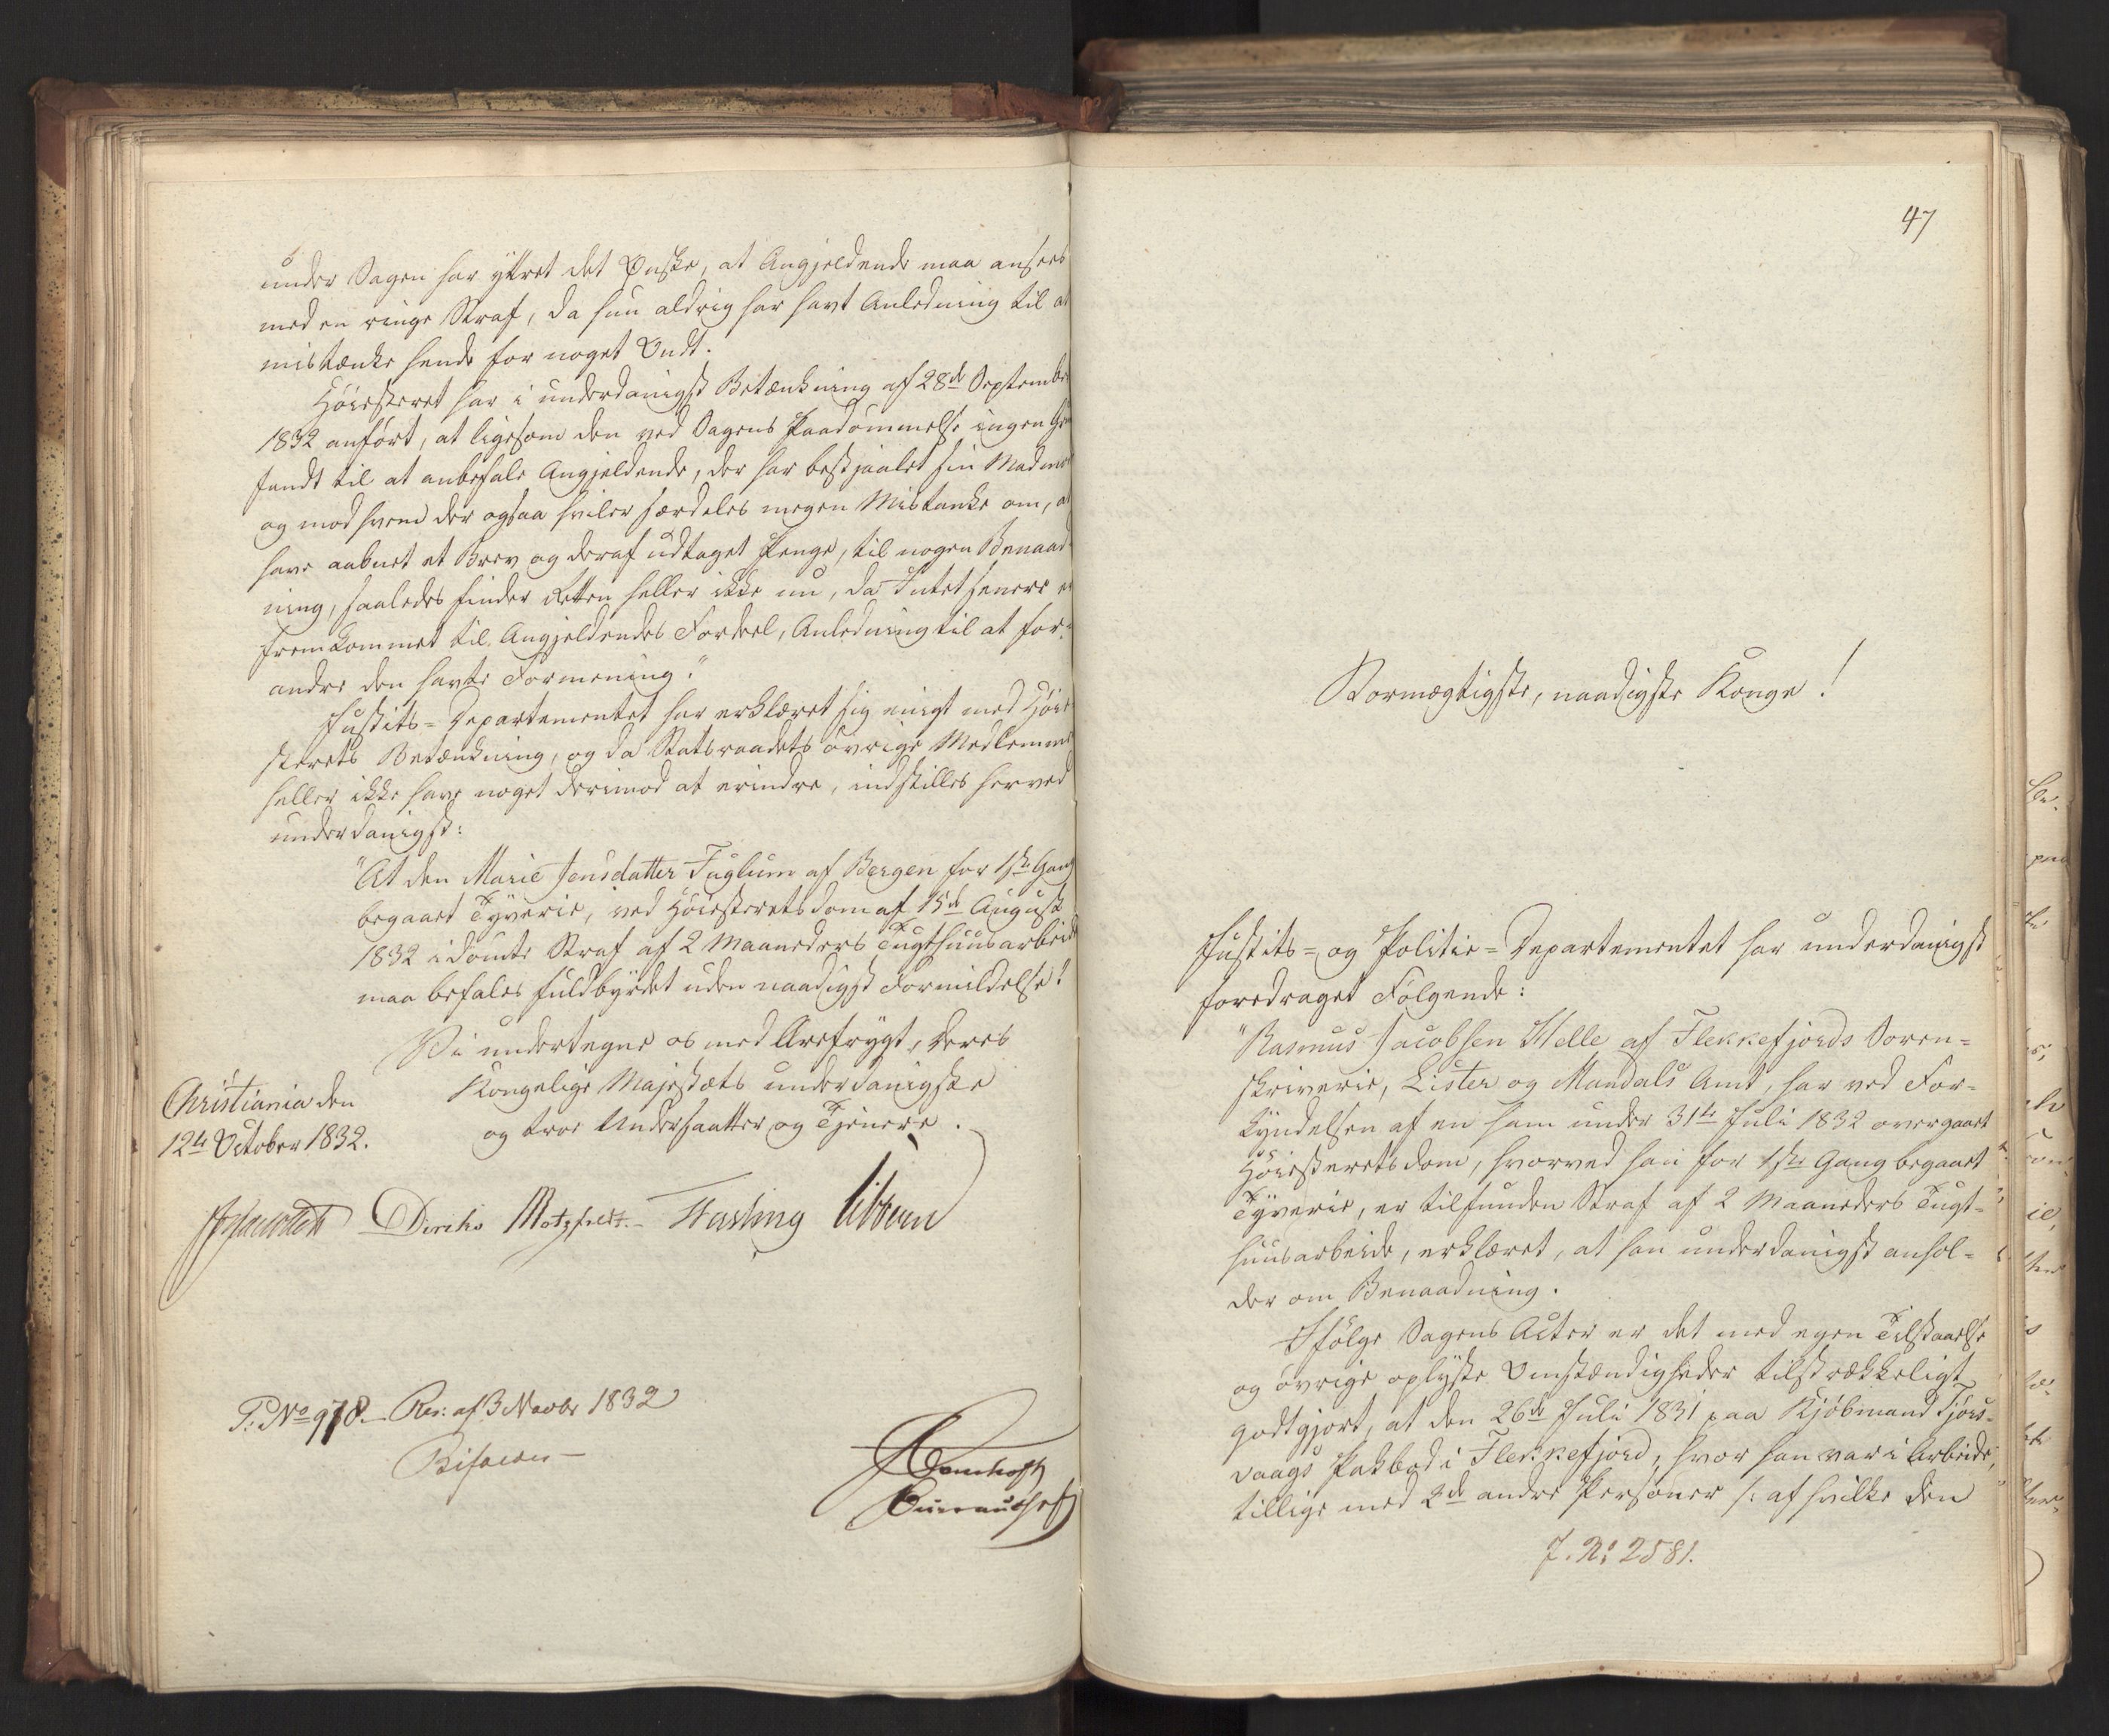 under Sagen har yttret det Ønske, at Angjeldende maa ansees
med en ringe Straf, da hun aldrig har havt Anledning til at
mistænke hende for noget Ondt.
Höiesteret har i underdanigst Betænkning af 28de September
1832 anfört, at ligesom den ved Sagens Paadömmelse ingen
fandt til at anbefale Angjeldende, der har bestjaalet sin Madmoer
og mod hvem der ogsaa hviler særdeles megen Mistanke om, at
have aabnet et Brev og deraf udtaget Penge, til nogen Benaad-
ning, saaledes finder Retten heller ikke nu, da Intet senere er
fremkommet til Angjeldendes Fordeel, Anledning til at for-
andre den havte Formening."
Justits-Departementet har erklæret sig enigt med Höie-
sterets Betænkning, og da Statsraadets övrige Medlemmer
heller ikke have noget derimod at erindre, indstilles herved
underdanigst:
"At den Marie Jensdatter Fuglum af Bergen for 1ste Gang
begaaet Tyverie, ved Höiesteretsdom af 15de August
1832 idömte Straf af 2 Maaneders Tugthuusarbeide
maa befales fuldbyrdet uden naadigst Formildelse."
Vi undertegne os med Ærefrygt, Deres
Kongelige Majestæts underdanigste
og troe Undersaatter og Tjenere.
Christiania den
12te October 1832.
Diriks Motzfeldt Fasting
P. No 978. Res: af 3 Novbr 1832
Bifaldes
47
Stormægtigste, naadigste Konge!
Justits- og Politie-Departementet har underdanigst
foredraget Fölgende:
"Rasmus Jacobsen Helle af Flekkefjords Soren-
skriverie, Lister og Mandals Amt, har ved For-
kyndelsen af en ham under 31te Juli 1832 overgaaet
Höiesteretsdom, hvorved han for 1ste Gang begaaet
Tyverie, er tilfunden Straf af 2 Maaneders Tugt-
huusarbeide, erklæret, at han underdanigst anhol-
der om Benaadning.
Ifölge Sagens Acter er det med egen Tilstaaelse
og övrige oplyste Omstændigheder tilstrækkeligt
godtgjort, at den 26de Juli 1831 paa Kjöbmand Tjörs-
vaags Pakbod i Flekkefjord, hvor han var i Arbeide,
tillige med 2de andre Personer /: af hvilke den
J. No 2581.